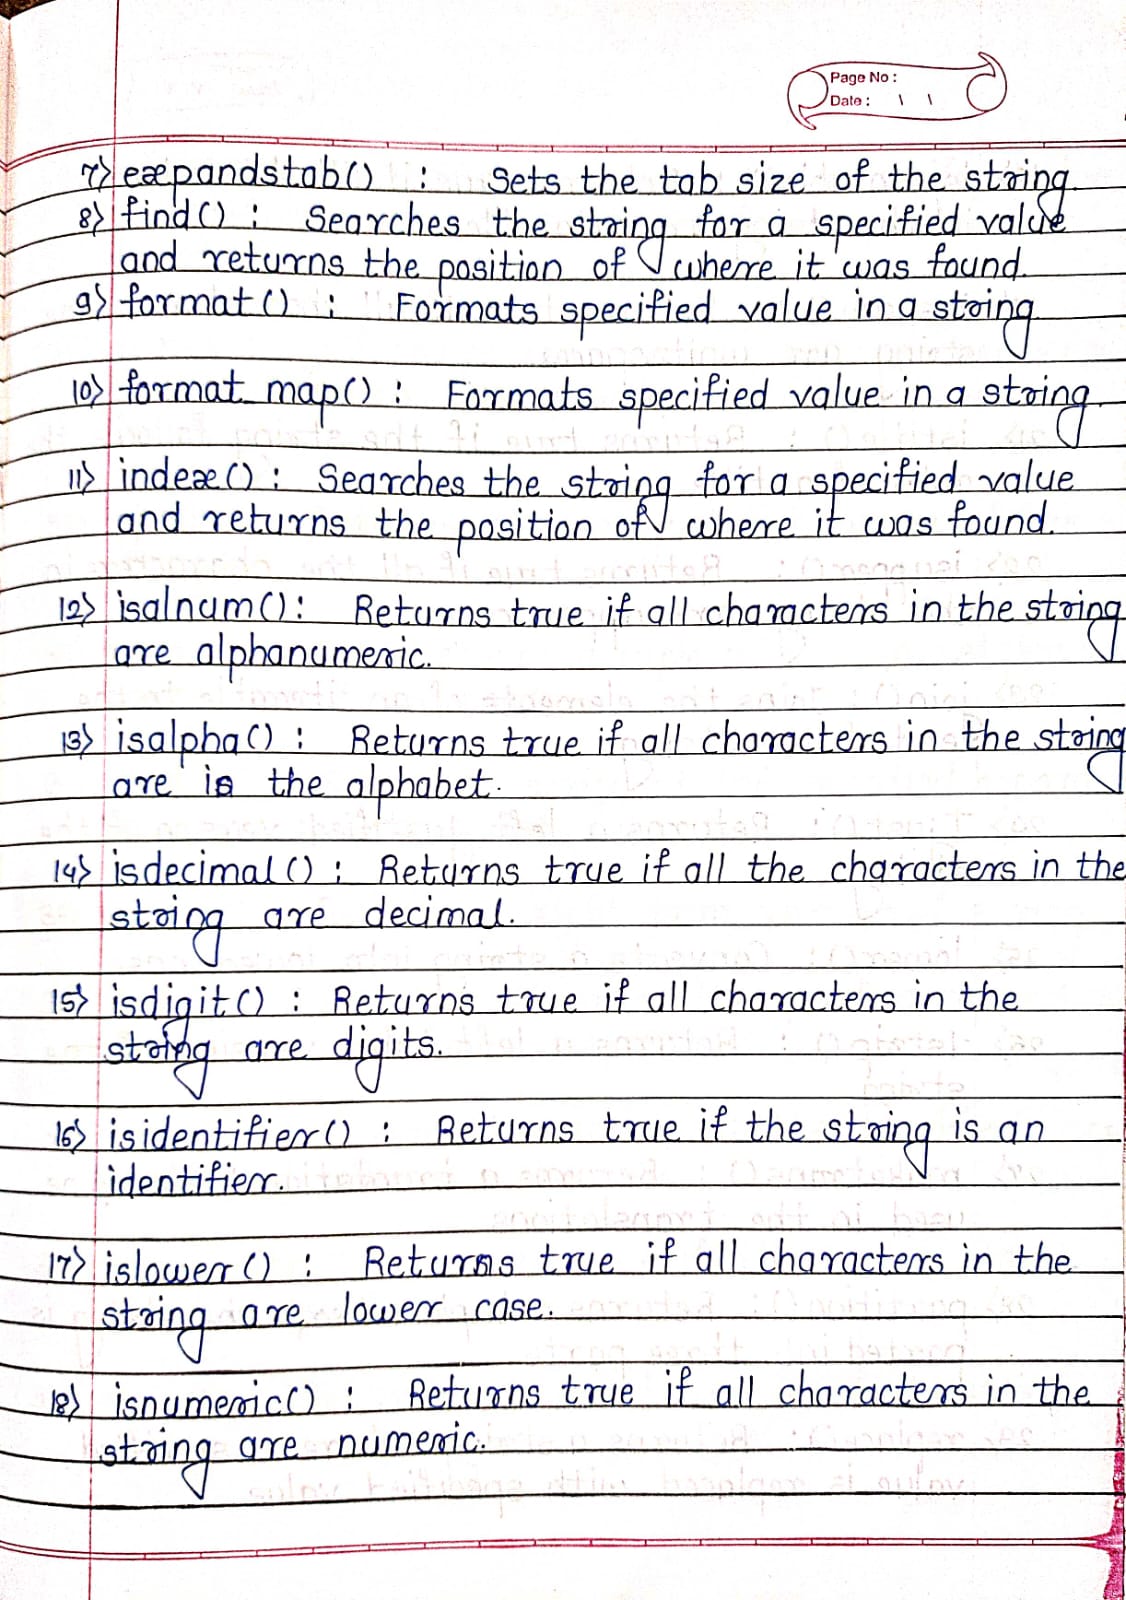 Page No :
Date : \ \
7) expandstab() : Sets the tab size of the string
8) find() : Searches the string for a specified value
and returns the position of where it was found.
9) format() : Formats specified value in a string
10) format_map() : Formats specified value in a string
11) index() : Searches the string for a specified value
and returns the position of where it was found.
12) isalnum() : Returns true if all characters in the string
are alphanumeric.
13) isalpha() : Returns true if all characters in the string
are is the alphabet.
14) isdecimal() : Returns true if all the characters in the
string are decimal.
15) isdigit() : Returns true if all characters in the
string are digits.
16) isidentifier() : Returns true if the string is an
identifier.
17) islower() : Returns true if all characters in the
string are lower case.
18) isnumeric() : Returns true if all characters in the
string are numeric.